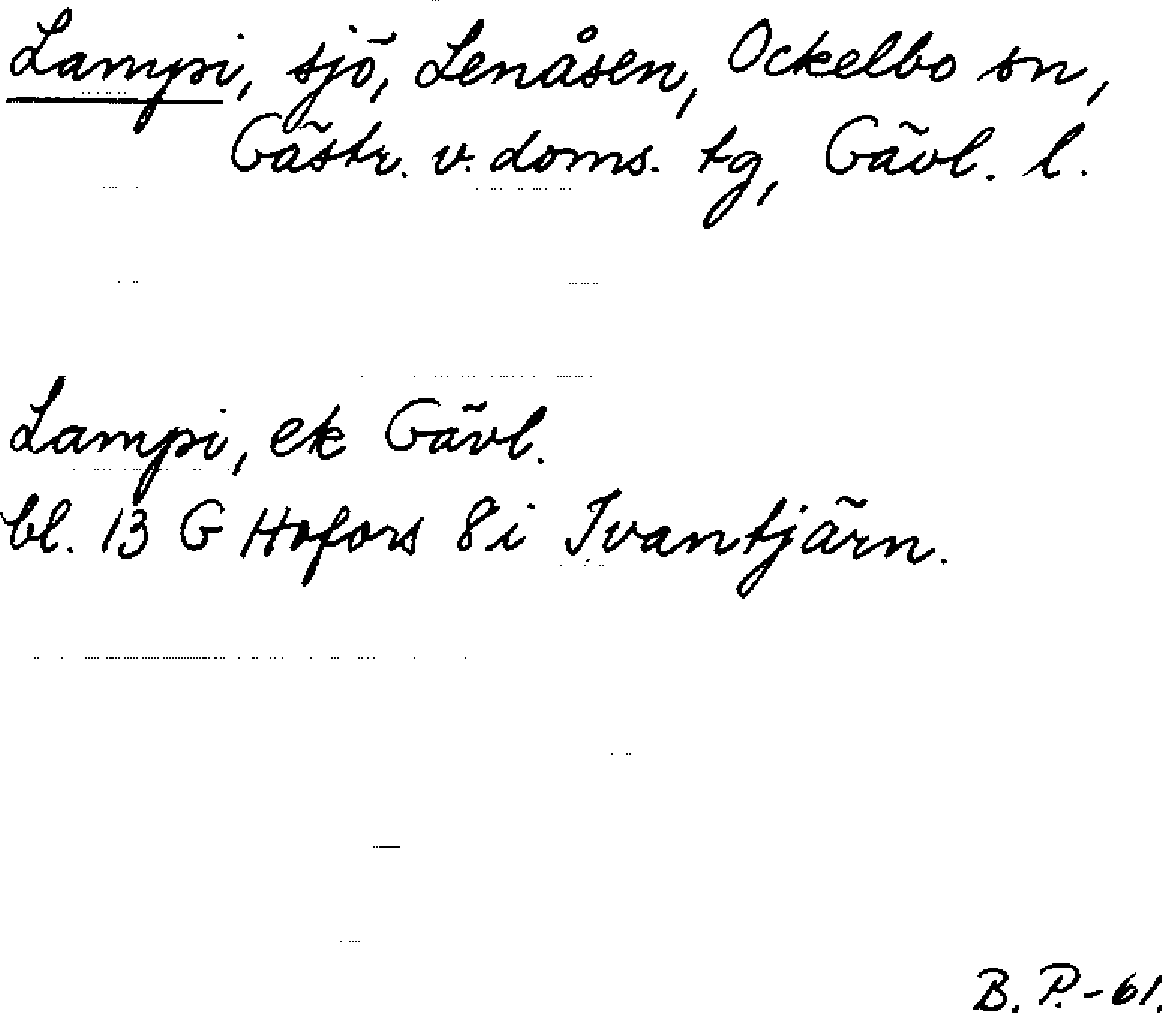 Lampi, sjö, Lenåsen, Ockelbo sn,
Gästr. v. doms. tg, Gävl. l.
Lampi, ek Gävl.
bl. 13 G Hofors 8 i Ivantjärn.
B. P. - 61.